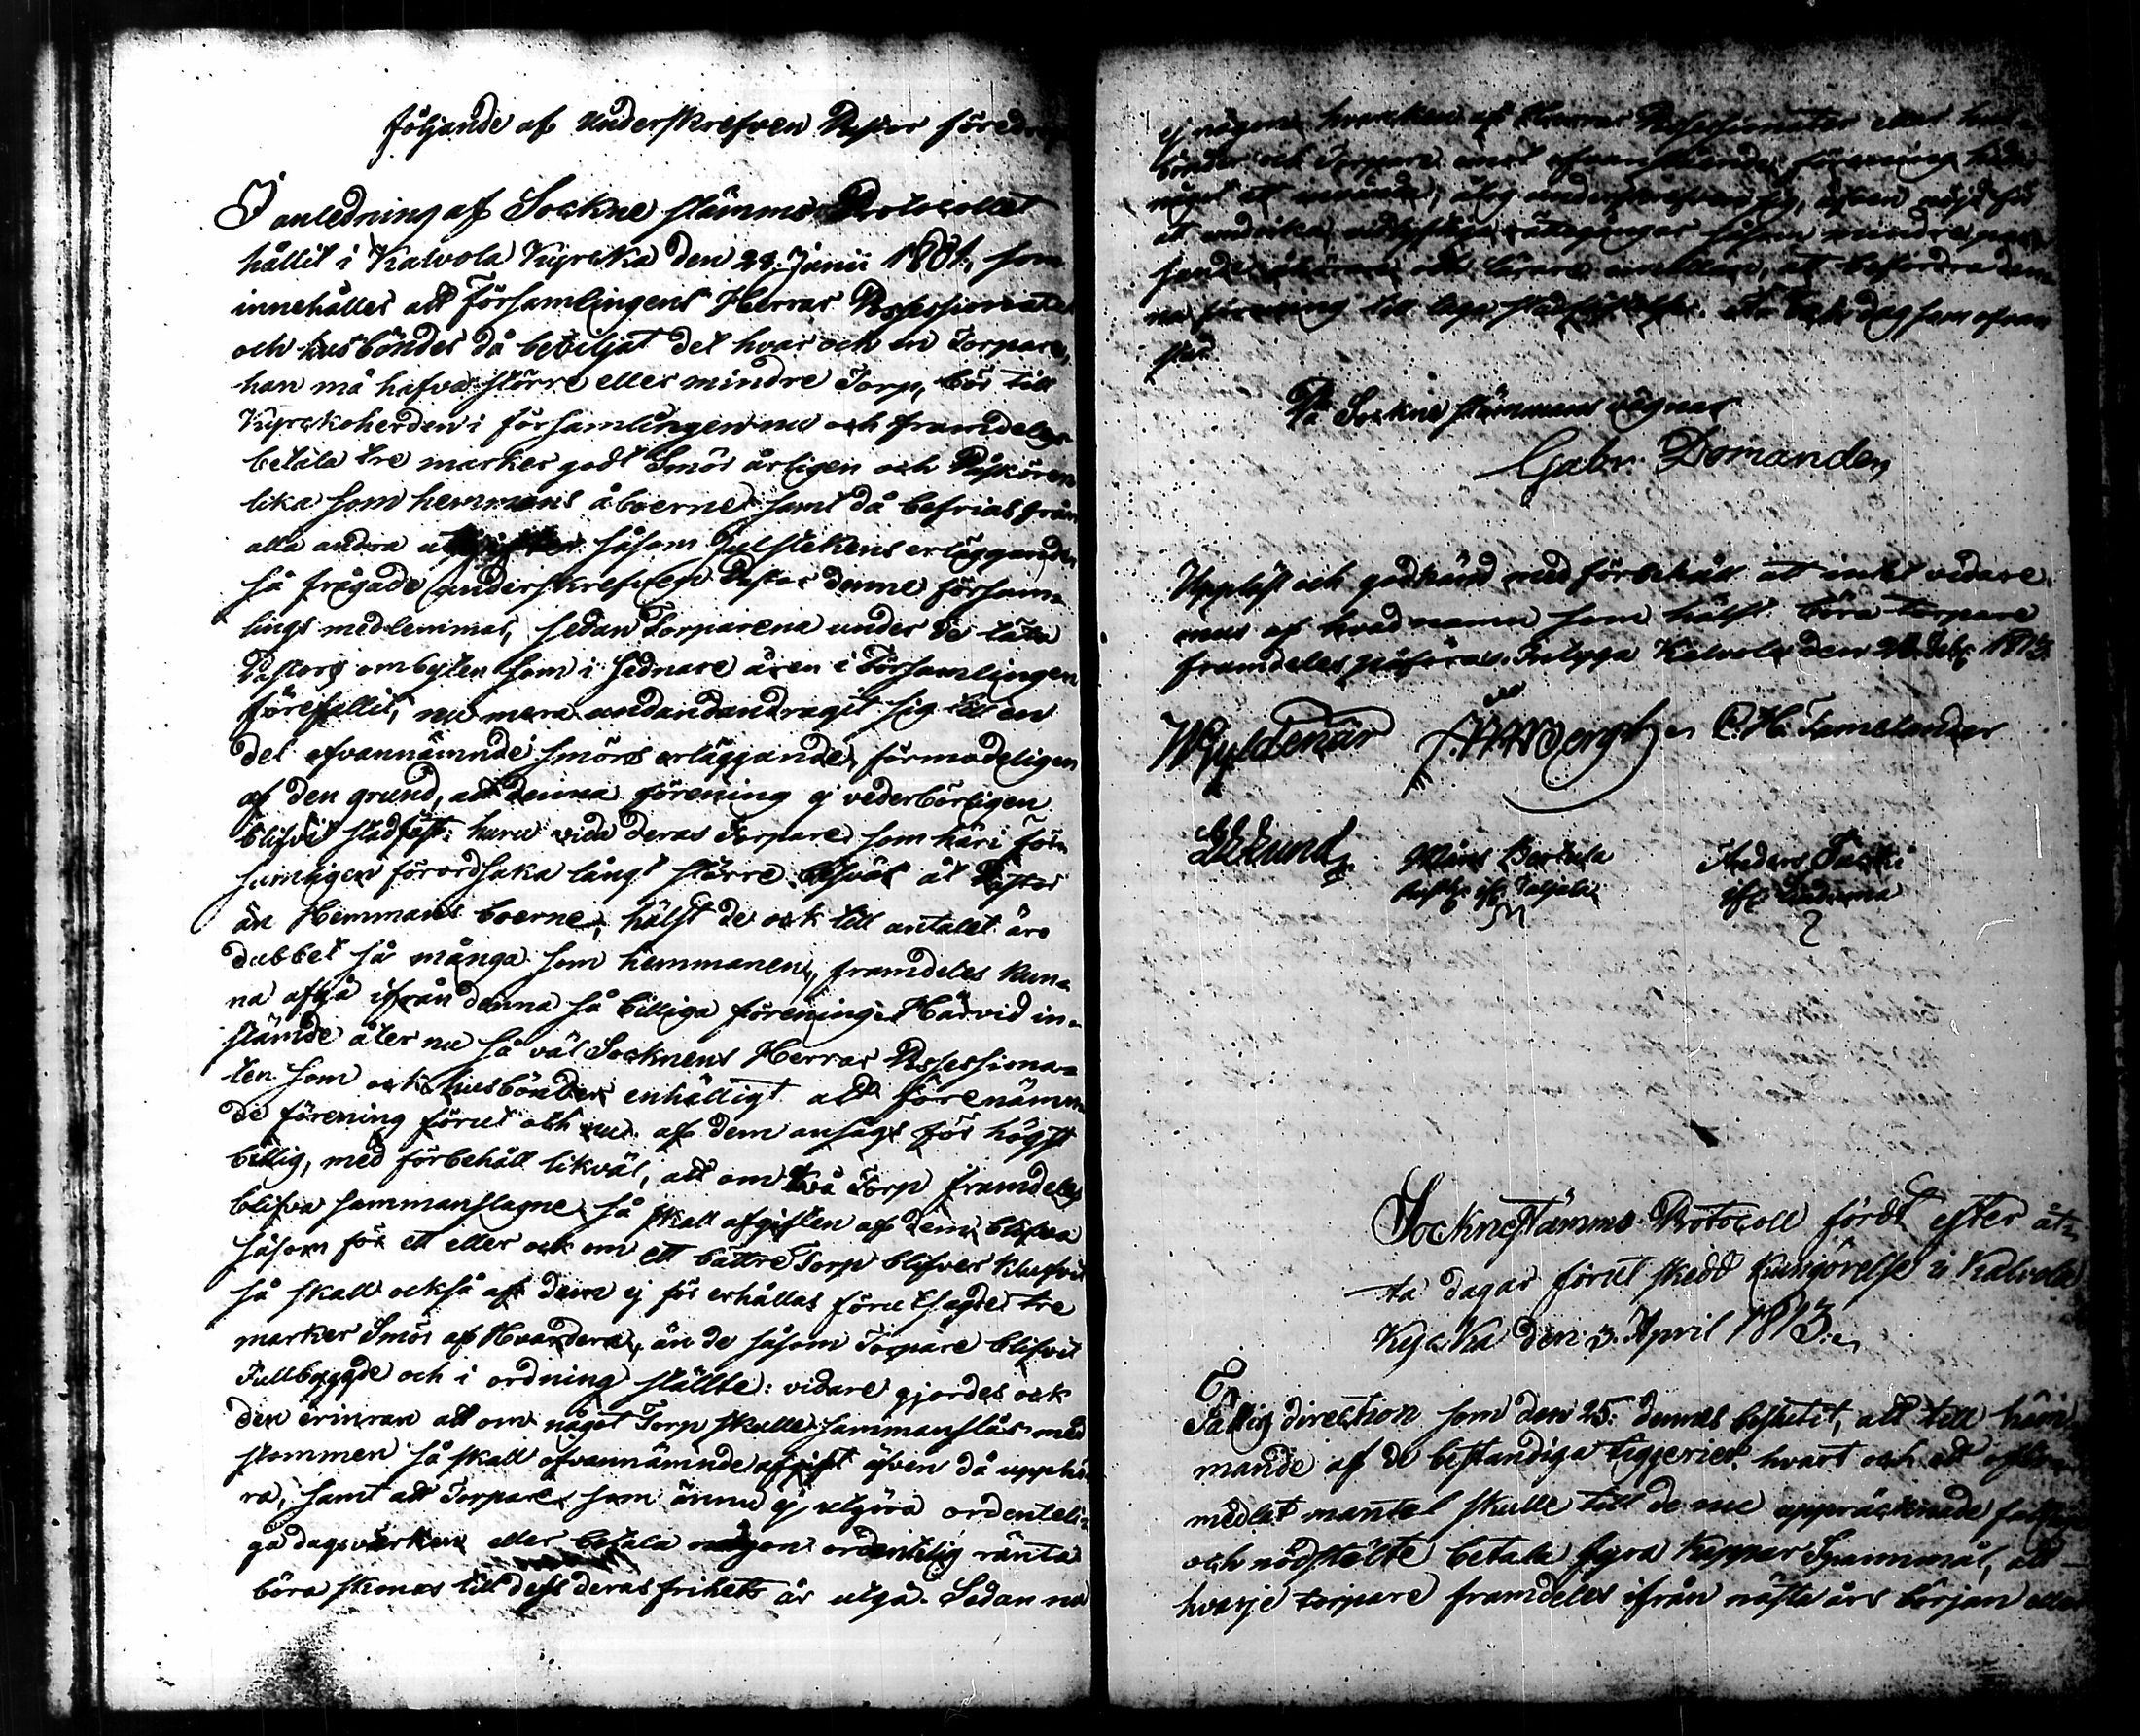 följande af Underskrefven Pastor föredrogs
I anledning af Sockne stämmo Protocollet
hållit i Kalvola Kyrcka den 28. Junii 1801, som
innehåller att Församlingens Herrar Possessionater
och husbönder då beviljat det hvar och en Torpare,
han må hafva större eller mindre Torp, bör till
Kyrckoherden i församlingen nu och framdeles
betala tre marker godt Smör årligen och Påskören
lika som hemmans åboerne samt då befrias från
alla andra utgifter såsom Julstekens erläggande
så frågade underskrefven Pastor denne försam-
lings medlemmar, sedan Torparena under de täta
Pastors ombyten som i sednare åren i Församlingen
förefallit, nu mera undandandragit sig till en
del ofvannämnde smörs erläggande, förmodeligen
af den grund, att denna förening ej vederbörligen
blifvit stadfäst: huru vida deras Torpare som här i för-
samlingen förordsaka långt större besvär åt Pastor
än Hemmans boerne, hälst de ock till antalet äro
dubbelt så många som hemmanen, framdeles kun-
na afgå ifrån denna så billiga förening. Härvid in-
stämde åter nu så väl Socknens Herrar Possessiona-
ter som ock husbönder enhälligt att förenämn-
de förening förut och nu af dem ansågs för högst
billig, med förbehåll likväl, att om två Torp framdeles
blifva sammanslagne så skall afgiften af dem blifva
såsom för ett eller ock om ett bättre Torp blifver klufvit
så skall också af dem ej för erhållas förutsagde tre
marker Smör af Hvardera, än de såsom Torpare blifvit
Fullbyggde och i ordning ställte: vidare gjordes ock
den erinran att om något Torp skulle sammanslås med
stommen så skall ofvannämnde afgift äfven då upphö-
ra, samt att Torpare som ännu ej utgöra ordenteli-
ga dagsverken eller betala någon ordentelig ränta
böra skonas till dess deras frihets år utgå. Sedan nu
ej någon hvarcken af Herrar Possessionater eller hus-
bönder och Torpare emot ofvanstående förening hade
något at använda, åtog underskrefven sig, äfven
at undvika rättegångar såsom mindre pas-
sande åhörare och lärare emellan, at befordra den-
na förening till laga stadfästelse. År och dag som ofvan
står
På Sockne stämmans vägnar
Gabr. Domander
Uppläst och godkänd med förbehåll at intet vidare
af hvad namn som hälst böra torpare
framdeles påföras. Kalvola den 1813.
W Gyldenär
C. H. Tamelander
Eklund
Måns Bertula
Anders
Sockne stämmo Protocoll fördt efter åt-
ta dagar förut skedd kungörelse i Kalvola
Kyrcka den 3. April 1813.
Fattig direction som den 25. dennes beslutit, att till häm-
mande af de bestandiga tiggeriet, hvart och ett oför-
medlat mantal skulle till de nu uppräcknade fattiga
och nödstälte betala fyra kappar Spannmål, att
hvarje torpare framdeles ifrån nästa års början eller